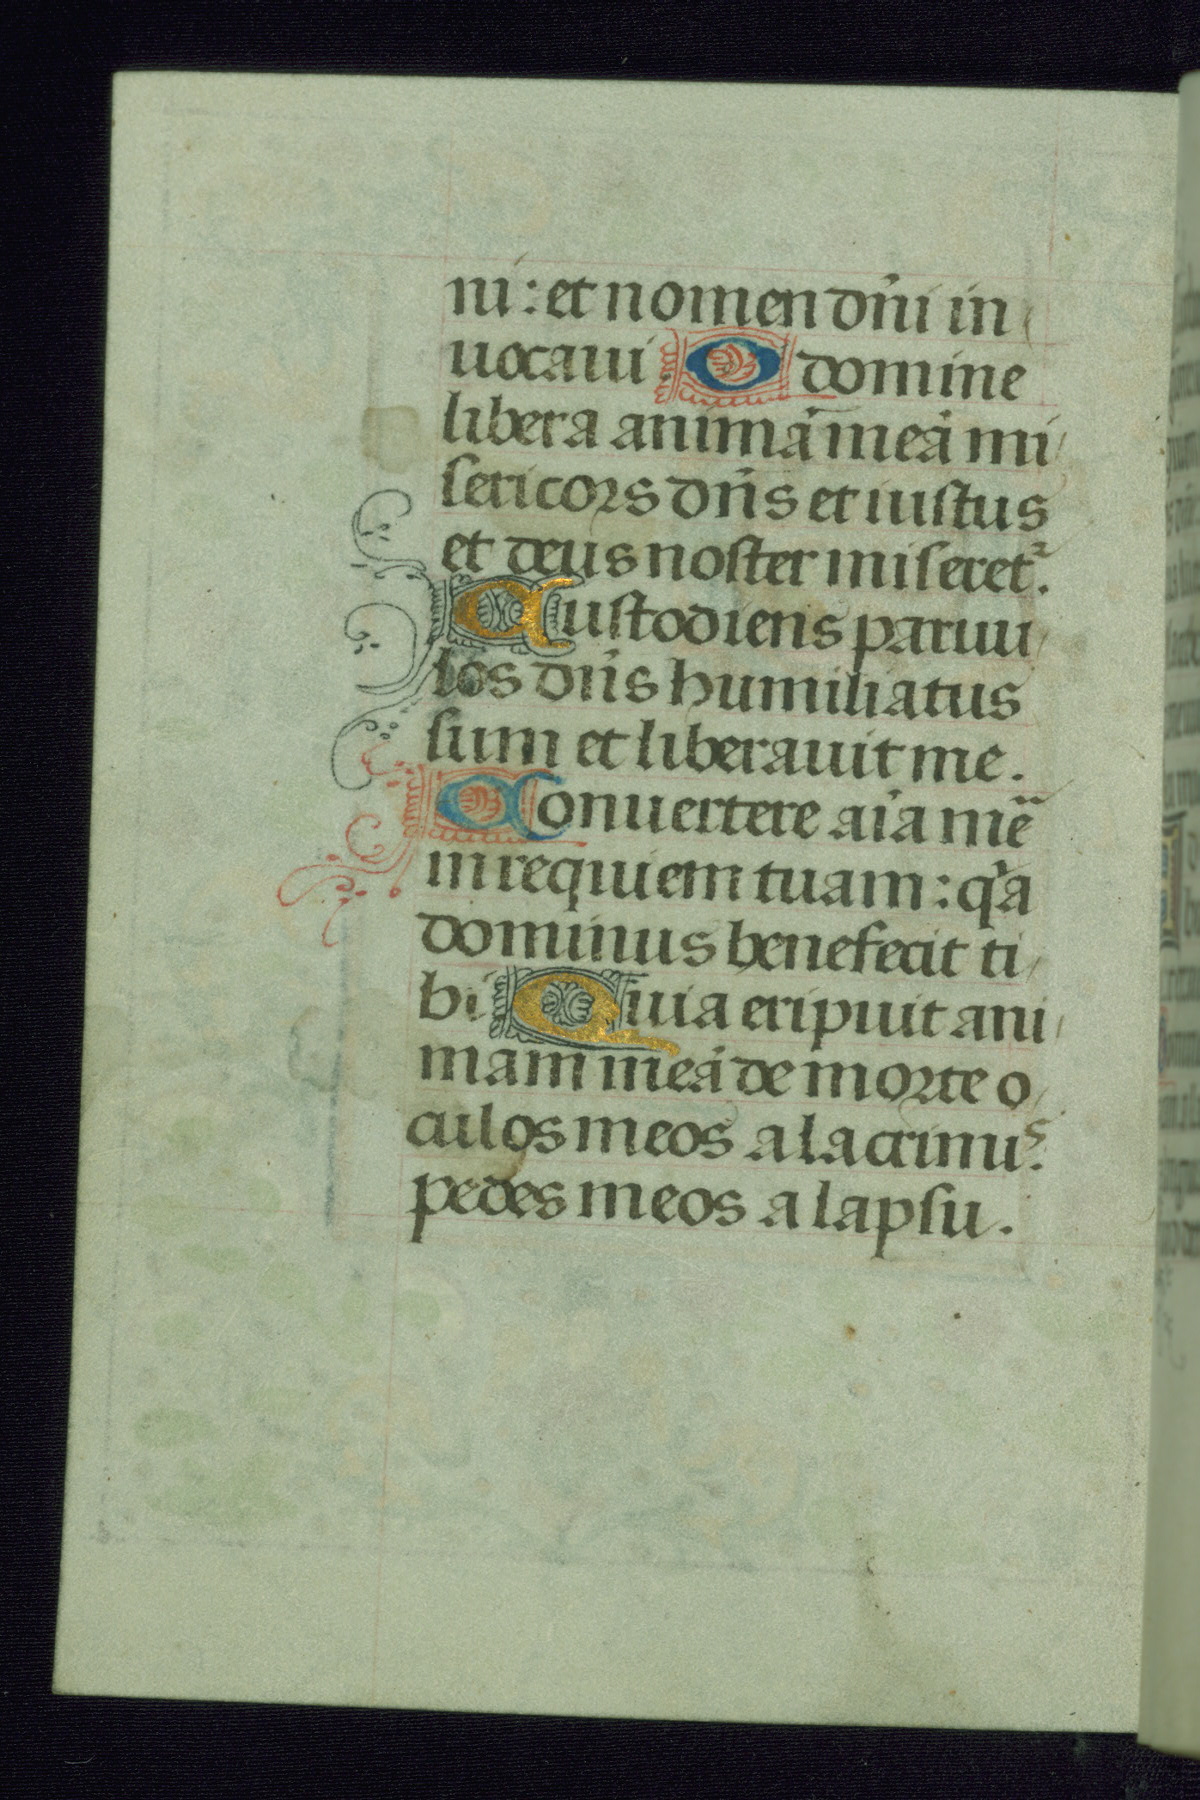 ni: et nomen dñi in
uocaui. O domine
libera animā meā mi
sericors dñs et iustus
et deus noster miseretᷣ.
Custodiens paruu
los dñs humiliatus
sum et liberauit me.
Conuertere aīa mē
in requiem tuam: qͥa
dominus benefecit ti
bi Quia eripuit ani
mam meā de morte o
culos meos a lacrimiˢ.
pedes meos a lapsu.